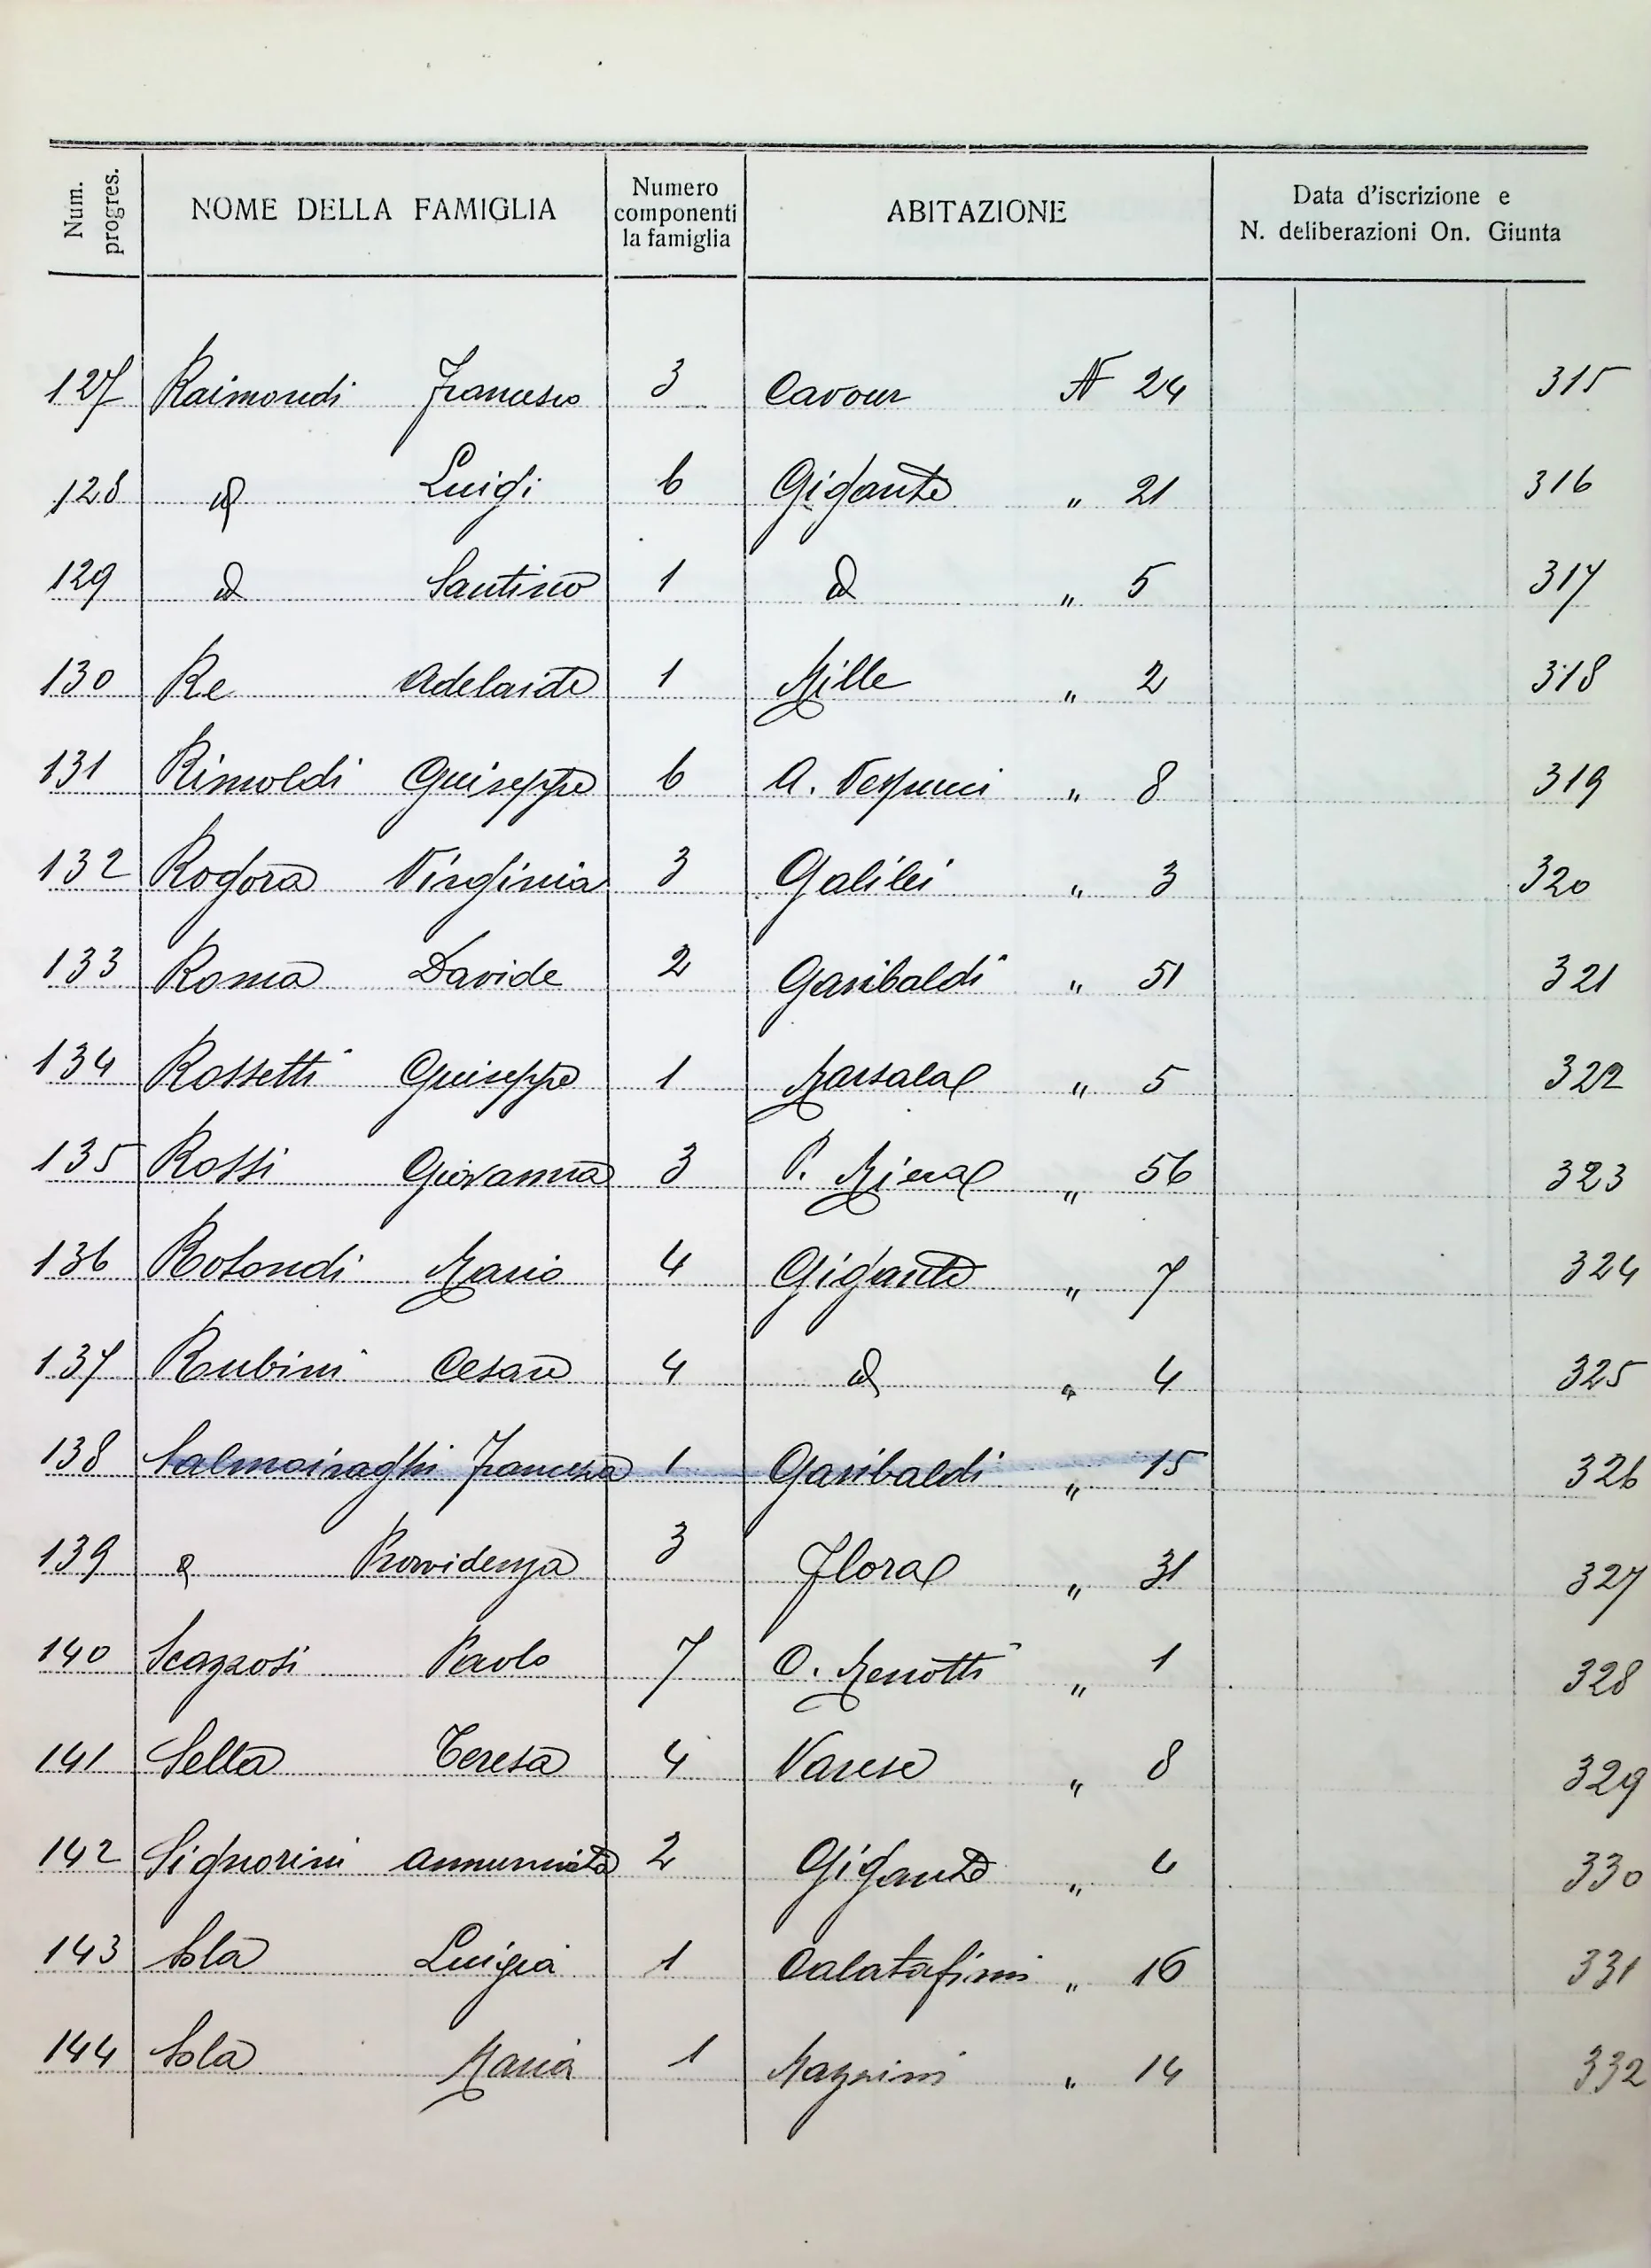 Num. progres. NOME DELLA FAMIGLIA Numero componenti la famiglia ABITAZIONE Data d'iscrizione e N. deliberazioni On. Giunta
127 Raimondi Francesco 3 Cavour N 24 315
128 id Luigi 6 Gigante " 21 316
129 id Santino 1 id " 5 317
130 Re Adelaide 1 Mille " 2 318
131 Rimoldi Giuseppe 6 A. Vespucci " 8 319
132 Rogora Virginia 3 Galilei " 3 320
133 Roma Davide 2 Garibaldi " 51 321
134 Rossetti Giuseppe 1 Marsala " 5 322
135 Rossi Giovanna 3 P. Mica " 56 323
136 Rotondi Mario 4 Gigante " 7 324
137 Rubini Cesare 4 id " 4 325
138 Salmoiraghi Francesca 1 Garibaldi " 15 326
139 id Provvidenza 3 Flora " 31 327
140 Scazzosi Paolo 7 C. Menotti " 1 328
141 Sella Teresa 4 Varese " 8 329
142 Signorini Annunciata 2 Gigante " 4 330
143 Sola Luigia 1 Calatafimi " 16 331
144 Sola Maria 1 Mazzini " 14 332